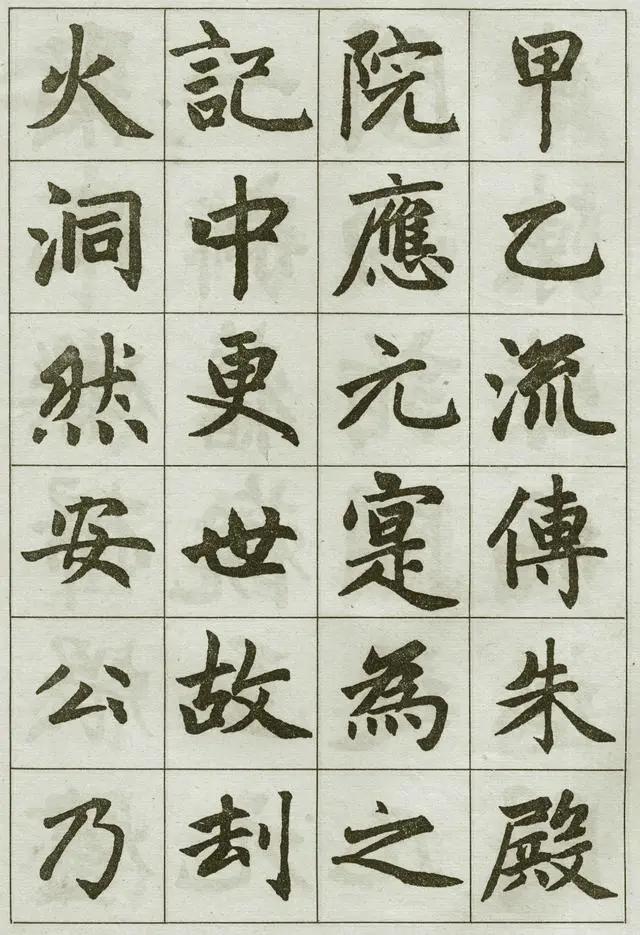 甲乙流傳朱殿
院應元寔為之
記中更世故刦
火洞然安公乃